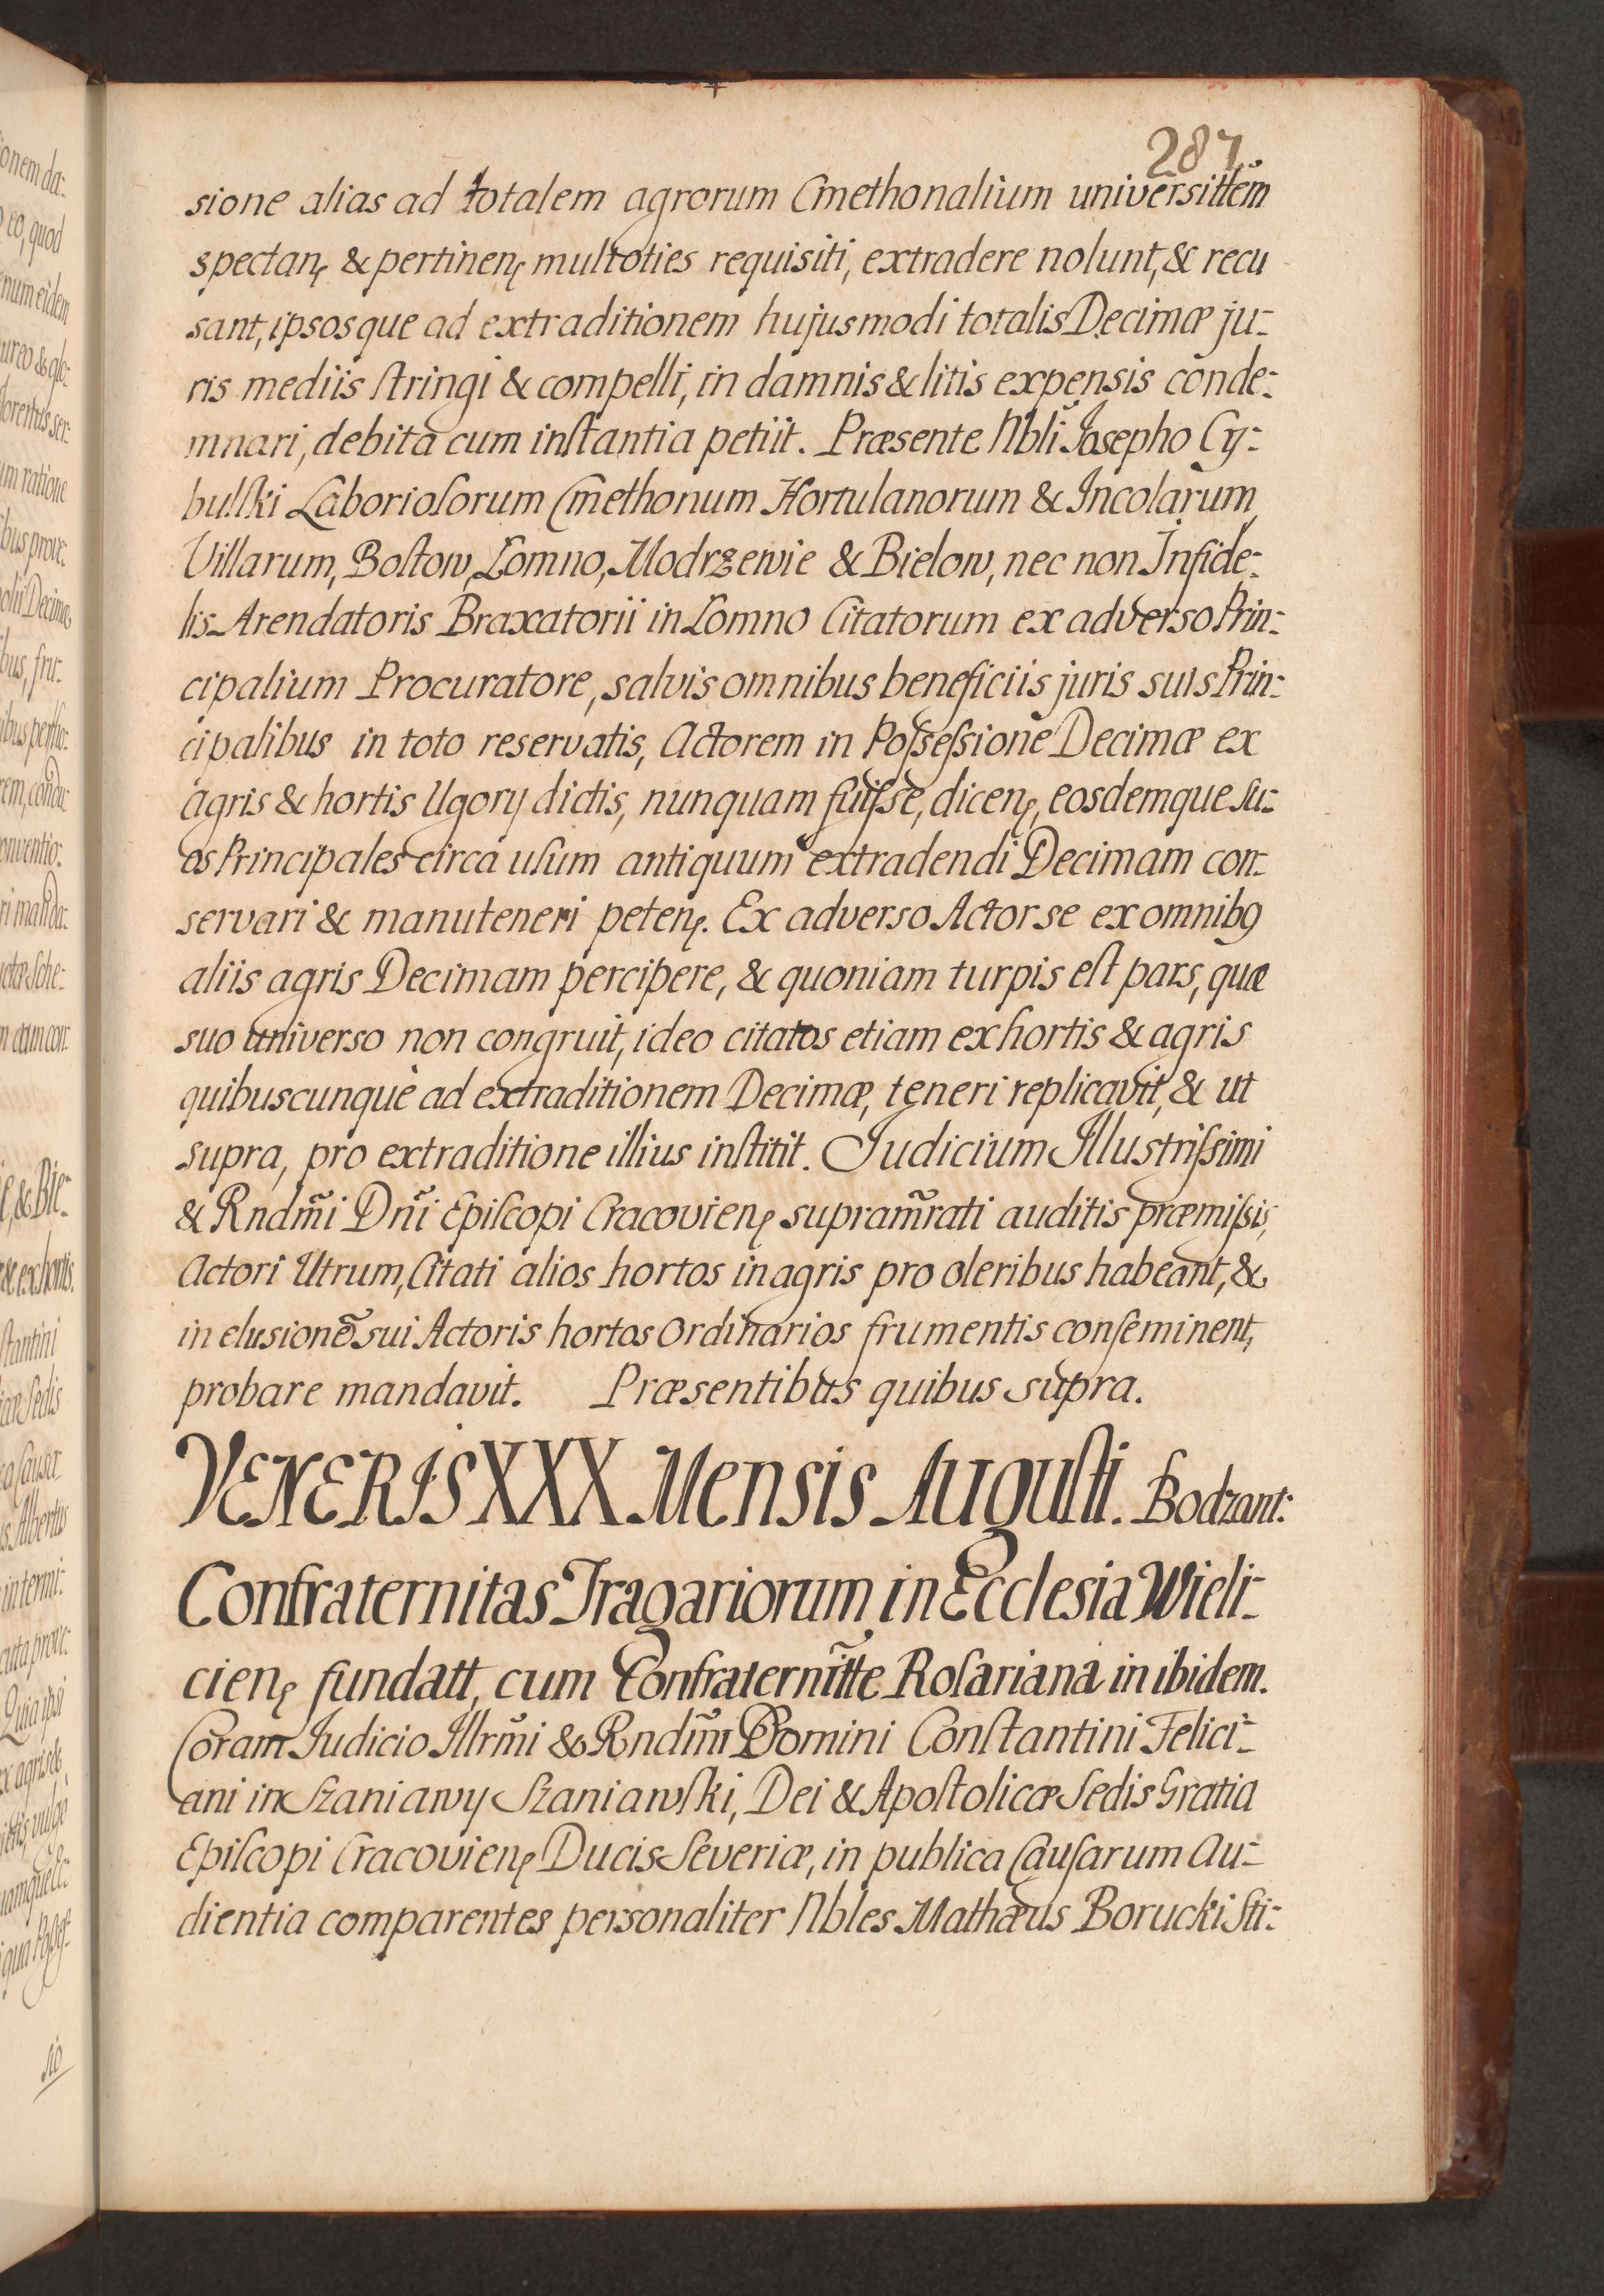 287
sione alias ad totalem agrorum Cmethonalium universittem̃
spectanę & pertinenę multoties requisiti, extradere nolunt, & recu
sant, ipsosque ad extraditionem hujusmodi totalis Decimæ ju:
ris mediis ſtringi & compelli, in damnis & litis expensis conde:
mnari, debita cum inſtantia petiit. Præsente Nbli Josepho Cy:
bulſki Laborioſorum Cmethonum Hortulanorum & Incolarum
Villarum, Boſtow, Lomno, Modrzewie & Bielow, nec non Infide:
lis Arendatoris Braxatorii in Lomno Citatorum ex adverso Prin:
cipalium Procuratore, salvis omnibus beneficiis juris suis Prin:
cipalibus in toto reservatis, Actorem in Poſseſsione Decimæ ex
agris & hortis Ugory dictis, nunquam fuiſse, dicenę, eosdemque ſu:
os Principales circa uſum antiquum extradendi Decimam con:
servari & manuteneri petenę. Ex adverso Actor se ex omnibꝯ
aliis agris Decimam percipere, & quoniam turpis eſt pars, quæ
suo universo non congruit, ideo citatos etiam ex hortis & agris
quibuscunque ad extraditionem Decimæ, teneri replicavit, & ut
supra, pro extraditione illius inſtitit. Judicium Illustriſsimi
& Rndm̃i Dñi Epiſcopi Cracovienę supram̃rati auditis præmiſsis,
Actori Utrum, Citati alios hortos in agris pro oleribus habeant, &
in elusionẽ sui Actoris hortos Ordinarios frumentis conſeminent,
probare mandavit. Præsentibus quibus supra.
VENERIS XXX Mensis Auguſti. Bodzant:
Confraternitas Tragariorum in Ecclesia Wieli:
cienę fundatt, cum Confraternit̃te Roſariana in ibidem.
Coram Judicio Illrm̃i & Rndm̃i Domini Conſtantini Felici:
ani in Szaniawy Szaniawſki, Dei & Apoſtolicæ Sedis Gratia
Epiſcopi Cracovienę Ducis Severiæ, in publica Cauſarum Au:
dientia comparentes personaliter Nbles Mathæus Borucki Sti: